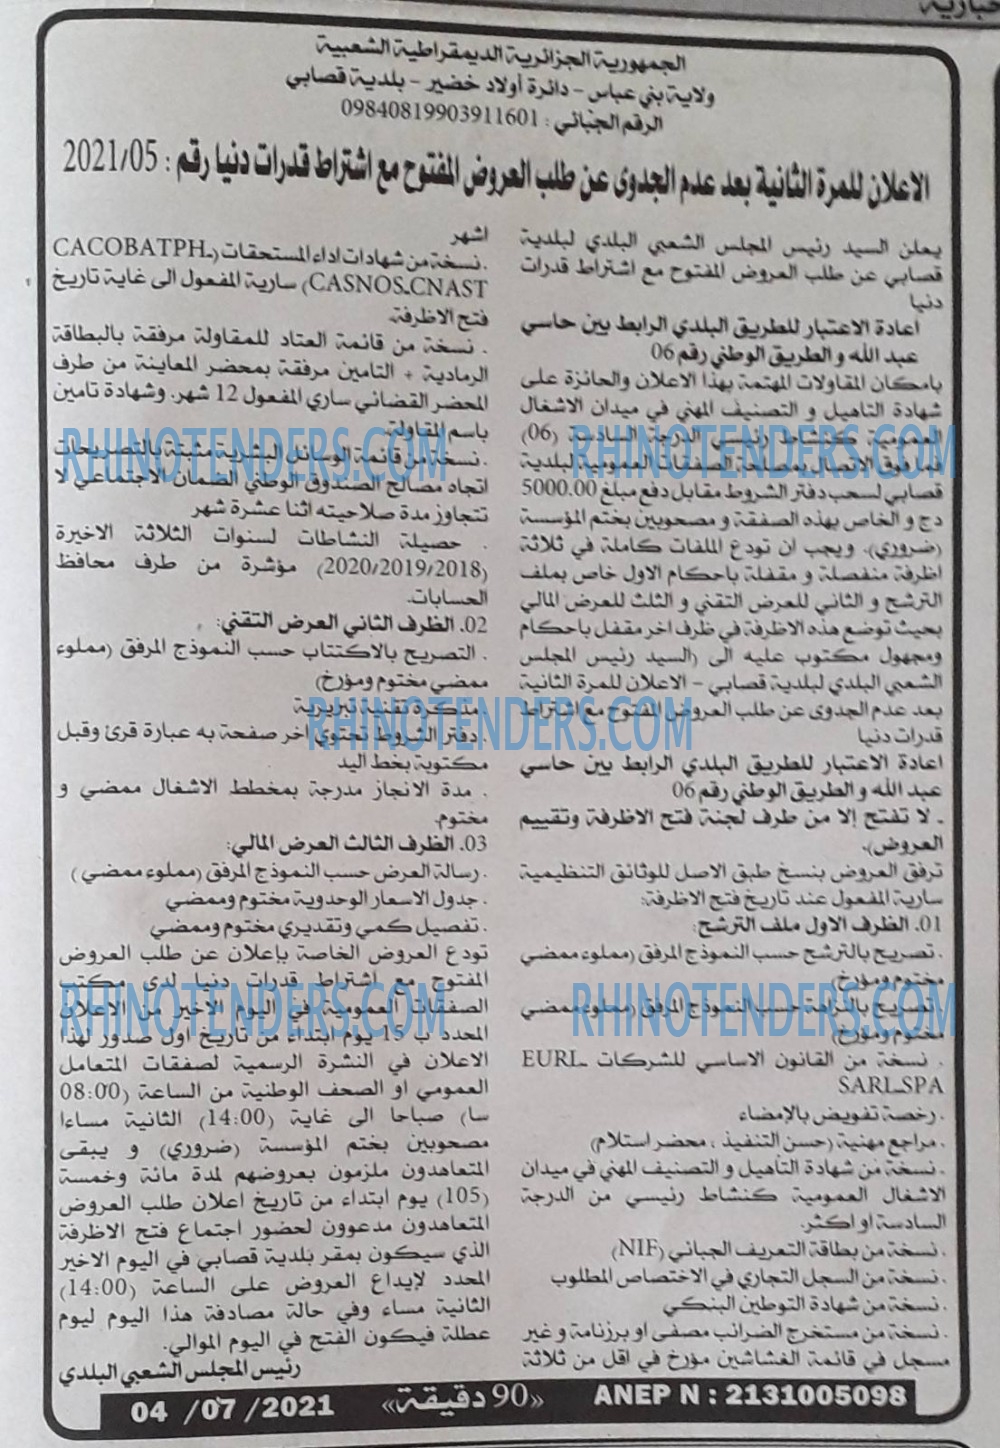 خبارية
الجمهورية الجزائرية الديمقراطية الشعبية
ولاية بني عباس - دائرة أولاد خضير - بلدية قصابي
الرقم الجبائي : 09840819903911601
الاعلان للمرة الثانية بعد عدم الجدوى عن طلب العروض المفتوح مع اشتراط قدرات دنيا رقم : 2021/05
يعلن السيد رئيس المجلس الشعبي البلدي لبلدية
قصابي عن طلب العروض المفتوح مع اشتراط قدرات
دنيا
اعادة الاعتبار للطريق البلدي الرابط بين حاسي
عبد الله و الطريق الوطني رقم 06
بامكان المقاولات المهتمة بهذا الاعلان والحائزة على
شهادة التاهيل و التصنيف المهني في ميدان الاشغال
العمومية كنشاط رئيسي الدرجة السادسة (06)
فما فوق الاتصال بمصلحة الصفقات العمومية لبلدية
قصابي لسحب دفتر الشروط مقابل دفع مبلغ 5000.00
دج و الخاص بهذه الصفقة و مصحوبين بختم المؤسسة
(ضروري). ويجب ان تودع الملفات كاملة في ثلاثة
اظرفة منفصلة و مقفلة باحكام الاول خاص بملف
الترشح و الثاني للعرض التقني و الثلث للعرض المالي
بحيث توضع هذه الاظرفة في ظرف اخر مقفل باحكام
ومجهول مكتوب عليه الى (السيد رئيس المجلس
الشعبي البلدي لبلدية قصابي - الاعلان للمرة الثانية
بعد عدم الجدوى عن طلب العروض المفتوح مع اشتراط
قدرات دنيا
اعادة الاعتبار للطريق البلدي الرابط بين حاسي
عبد الله و الطريق الوطني رقم 06
ـ لا تفتح إلا من طرف لجنة فتح الاظرفة وتقييم
العروض).
ترفق العروض بنسخ طبق الاصل للوثائق التنظيمية
سارية المفعول عند تاريخ فتح الاظرفة:
01. الظرف الاول ملف الترشح:
. تصريح بالترشح حسب النموذج المرفق (مملوء ممضي
مختوم ومؤرخ)
. تصريح بالنزاهة حسب النموذج المرفق (مملوء ممضي
مختوم ومؤرخ)
. نسخة من القانون الاساسي للشركات EURL ـ
SARL ـ SPA
. رخصة تفويض بالإمضاء
. مراجع مهنية (حسن التنفيذ ، محضر استلام)
. نسخة من شهادة التأهيل و التصنيف المهني في ميدان
الاشغال العمومية كنشاط رئيسي من الدرجة
السادسة او اكثر.
. نسخة من بطاقة التعريف الجبائي (NIF)
. نسخة من السجل التجاري في الاختصاص المطلوب
. نسخة من شهادة التوطين البنكي
. نسخة من مستخرج الضرائب مصفى او برزنامة و غير
مسجل في قائمة الغشاشين مؤرخ في اقل من ثلاثة
اشهر
. نسخة من شهادات اداء المستحقات (CACOBATPH ـ
CASNOS ـ CNAST) سارية المفعول الى غاية تاريخ
فتح الاظرفة.
. نسخة من قائمة العتاد للمقاولة مرفقة بالبطاقة
الرمادية + التامين مرفقة بمحضر المعاينة من طرف
المحضر القضائي ساري المفعول 12 شهر. وشهادة تامين
باسم المقاولة.
. نسخة من قائمة الوسائل البشرية مثبتة بالتصريحات
اتجاه مصالح الصندوق الوطني الضمان الاجتماعي لا
تتجاوز مدة صلاحيته اثنا عشرة شهر
. حصيلة النشاطات لسنوات الثلاثة الاخيرة
(2020/2019/2018) مؤشرة من طرف محافظ
الحسابات.
02. الظرف الثاني العرض التقني:
. التصريح بالاكتتاب حسب النموذج المرفق (مملوء
ممضي مختوم ومؤرخ)
. مذكرة تقنية تبريرية
. دفتر الشروط تحتوي اخر صفحة به عبارة قرئ وقبل
مكتوبة بخط اليد
. مدة الانجاز مدرجة بمخطط الاشغال ممضي و
مختوم.
03. الظرف الثالث العرض المالي:
. رسالة العرض حسب النموذج المرفق (مملوء ممضي )
. جدول الاسعار الوحدوية مختوم وممضي
. تفصيل كمي وتقديري مختوم وممضي
تودع العروض الخاصة بإعلان عن طلب العروض
المفتوح مع اشتراط قدرات دنيا لدى مكتب
الصفقات العمومية في اليوم الاخير من الاعلان
المحدد ب 15 يوم ابتداء من تاريخ اول صدور لهذا
الاعلان في النشرة الرسمية لصفقات المتعامل
العمومي او الصحف الوطنية من الساعة (08:00
سا) صباحا الى غاية (14:00) الثانية مساءا
مصحوبين بختم المؤسسة (ضروري) و يبقى
المتعاهدون ملزمون بعروضهم لمدة مائة وخمسة
(105) يوم ابتداء من تاريخ اعلان طلب العروض
المتعاهدون مدعوون لحضور اجتماع فتح الاظرفة
الذي سيكون بمقر بلدية قصابي في اليوم الاخير
المحدد لإيداع العروض على الساعة (14:00)
الثانية مساء وفي حالة مصادفة هذا اليوم ليوم
عطلة فيكون الفتح في اليوم الموالي.
رئيس المجلس الشعبي البلدي
ANEP N : 2131005098
«90 دقيقة»
04 /07 /2021
RHINOTENDERS.COM
RHINOTENDERS.COM
RHINOTENDERS.COM
RHINOTENDERS.COM
RHINOTENDERS.COM